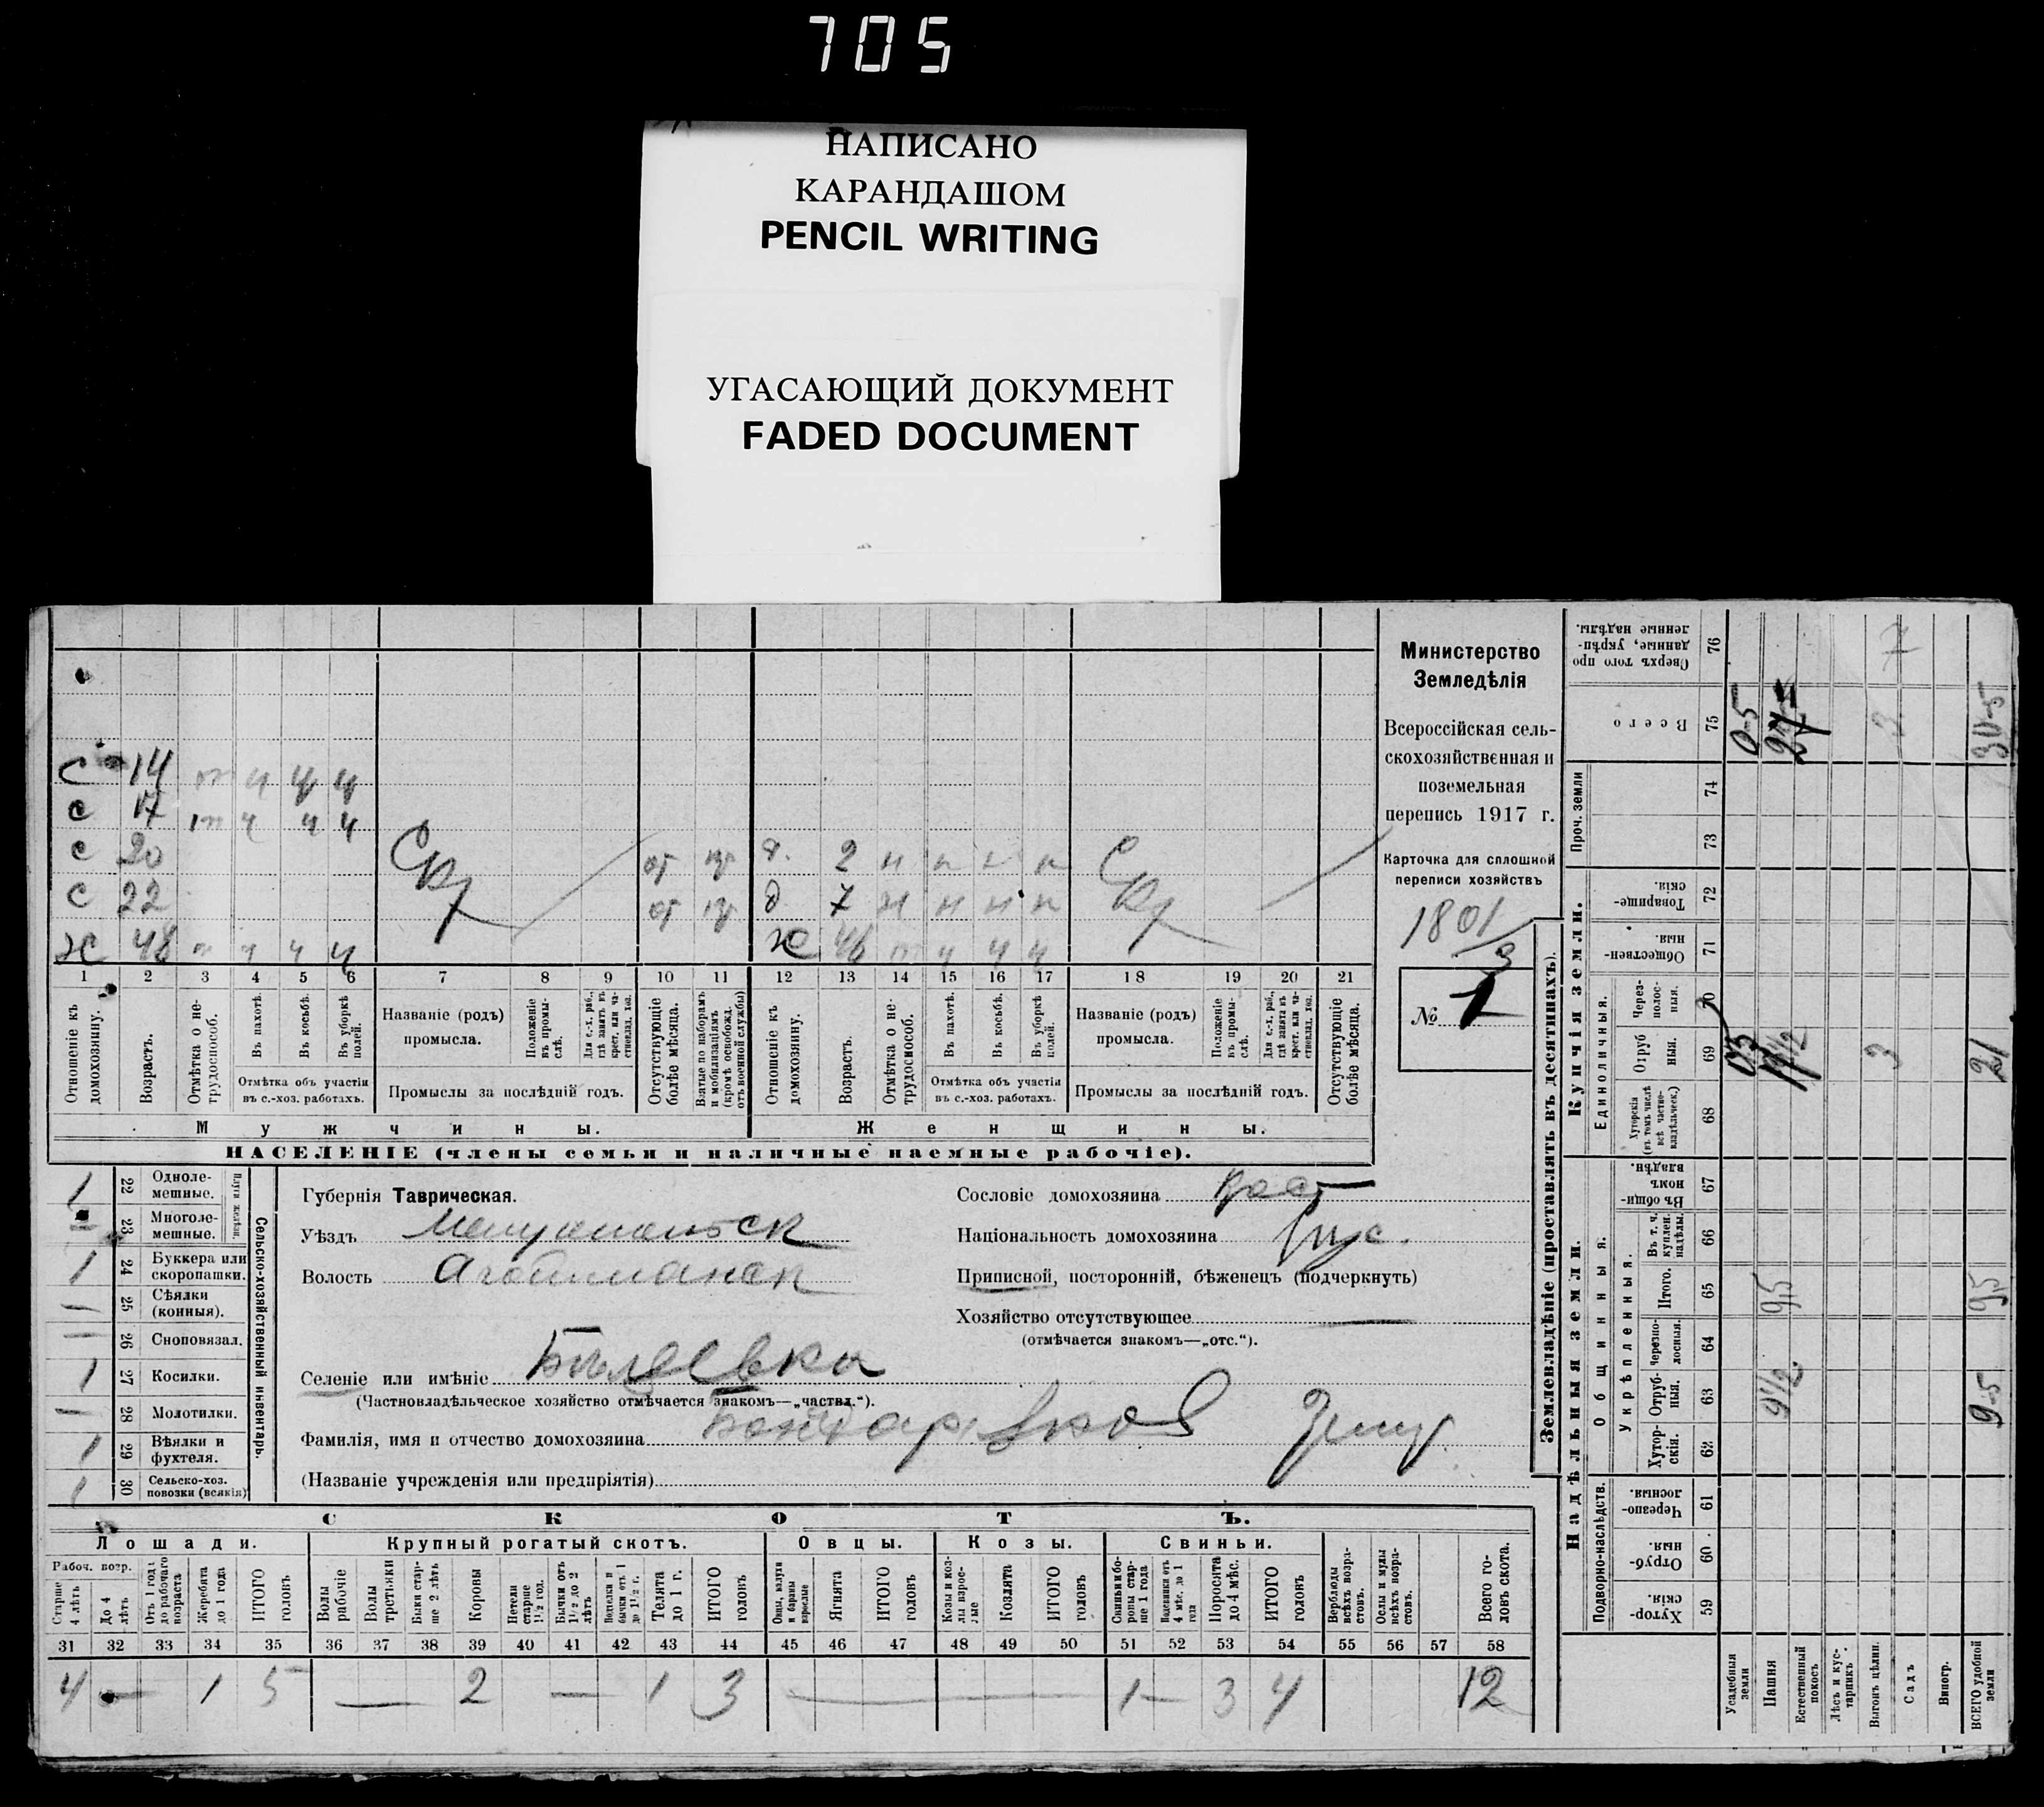 705
НАПИСАНО
КАРАНДАШОМ
PENCIL WRITING
УГАСАЮЩИЙ ДОКУМЕНТ
FADED DOCUMENT
Министерство
Земледѣлія
Всероссійская сель-
скохозяйственная и
поземельная
перепись 1917 г.
Карточка для сплошной
переписи хозяйствъ
1801
3
№ 1
с 14 т ч ч ч
с 17 т ч ч ч
с 20 от
с 22 от
ж 48 ч ч ч
д. 2 н н н н
д 7 н н н н
ж 46 т ч ч ч
1 2 3 4 5 6 7 8 9 10 11 12 13 14 15 16 17 18 19 20 21
Отношеніе къ домохозяину.
Возрастъ.
Отмѣтка о не-трудоспособ.
Въ пахотѣ.
Въ косьбѣ.
Въ уборкѣ полей.
Отмѣтка объ участіи
въ с.-хоз. работахъ.
Названіе (родъ)
промысла.
Положеніе въ промы-слѣ.
Для с.-х. раб., гдѣ занятъ въ крест. или ча-ствовлад. хоз.
Промыслы за послѣдній годъ.
Отсутствующіе болѣе мѣсяца.
Взятые по наборамъ и мобилизаціямъ (кромѣ освобожд. отъ военной службы)
Отношеніе къ домохозяину.
Возрастъ.
Отмѣтка о не-трудоспособ.
Въ пахотѣ.
Въ косьбѣ.
Въ уборкѣ полей.
Отмѣтка объ участіи
въ с.-хоз. работахъ.
Названіе (родъ)
промысла.
Положеніе въ промы-слѣ.
Для с.-х. раб., гдѣ занятъ въ крест. или ча-ствовлад. хоз.
Промыслы за послѣдній годъ.
Отсутствующіе болѣе мѣсяца.
Мужчины. Женщины.
НАСЕЛЕНІЕ (члены семьи и наличные наемные рабочіе).
Сельско-хозяйственный инвентарь.
Плуги желѣзн.
1 22 Одноле-мешные.
— 23 Многоле-мешные.
1 24 Буккера или скоропашки.
— 25 Сѣялки (конныя).
— 26 Сноповязал.
1 27 Косилки.
— 28 Молотилки.
1 29 Вѣялки и фухтеля.
1 30 Сельско-хоз. повозки (всякія)
Губернія Таврическая.
Уѣздъ Мелитопольск
Волость Агайманск
Селеніе или имѣніе
(Частновладѣльческое хозяйство отмѣчается знакомъ—„частвл.“).
Фамилія, имя и отчество домохозяина
(Названіе учрежденія или предпріятія)
Сословіе домохозяина
Національность домохозяина
Приписной, посторонній, бѣженецъ (подчеркнуть)
Хозяйство отсутствующее —
(отмѣчается знакомъ—„отс.“).
СКОТЪ.
Лошади. Крупный рогатый скотъ. Овцы. Козы. Свиньи.
Рабоч. возр.
Старше 4 лѣтъ
До 4 лѣтъ
Отъ 1 года до рабочаго возраста
Жеребята до 1 года
ИТОГО головъ
Волы рабочіе
Волы третьяки
Быки стар-ше 2 лѣтъ
Коровы
Нетели старше 1½ год.
Бычки отъ 1½ до 2 лѣтъ
Нетельки и бычки отъ 1 до 1½ г.
Телята до 1 г.
ИТОГО головъ
Овцы, валухи и бараны взрослые
Ягнята
ИТОГО головъ
Козы и коз-лы взрос-лые
Козлята
ИТОГО головъ
Свиньи и бо-ровы стар-ше 1 года
Подсвинки отъ 4 мѣс. до 1 года
Поросята до 4 мѣс.
ИТОГО головъ
Верблюды всѣхъ возра-стовъ.
Ослы и мулы всѣхъ возра-стовъ.
Всего го-ловъ скота.
31 32 33 34 35 36 37 38 39 40 41 42 43 44 45 46 47 48 49 50 51 52 53 54 55 56 57 58
4 — 1 5 — 2 — 1 3 — 1 — 3 4 12
Землевладѣніе (проставлять въ десятинахъ).
Надѣльныя земли. Купчія земли.
Подворно-наслѣдств.
Общинныя.
Укрѣпленныя.
Единоличныя.
Проч. земли
Хутор-скія. 59
Отруб-ныя. 60
Черезпо-лосныя. 61
Хутор-скія. 62
Отруб-ныя. 63
Черезпо-лосныя. 64
Итого. 65
Въ т. ч. куплен. надѣлы. 66
Въ общин-номъ владѣн. 67
Хуторскія (въ томъ числѣ всѣ частно-владѣльческ.) 68
Отруб ныя. 69
Через-полос-ныя. 70
Обществен-ныя. 71
Товарище-скія. 72
73
74
Всего 75
Сверхъ того про данные, укрѣп-ленные надѣлы. 76
Усадебныя земли
Пашня 9½ 9,5
Естественный покосъ.
Лѣсъ и кус-тарникъ.
Выгонъ цѣлин. 3
Садъ
Виногр.
ВСЕГО удобной земли 9-5 9,5 21 30-5